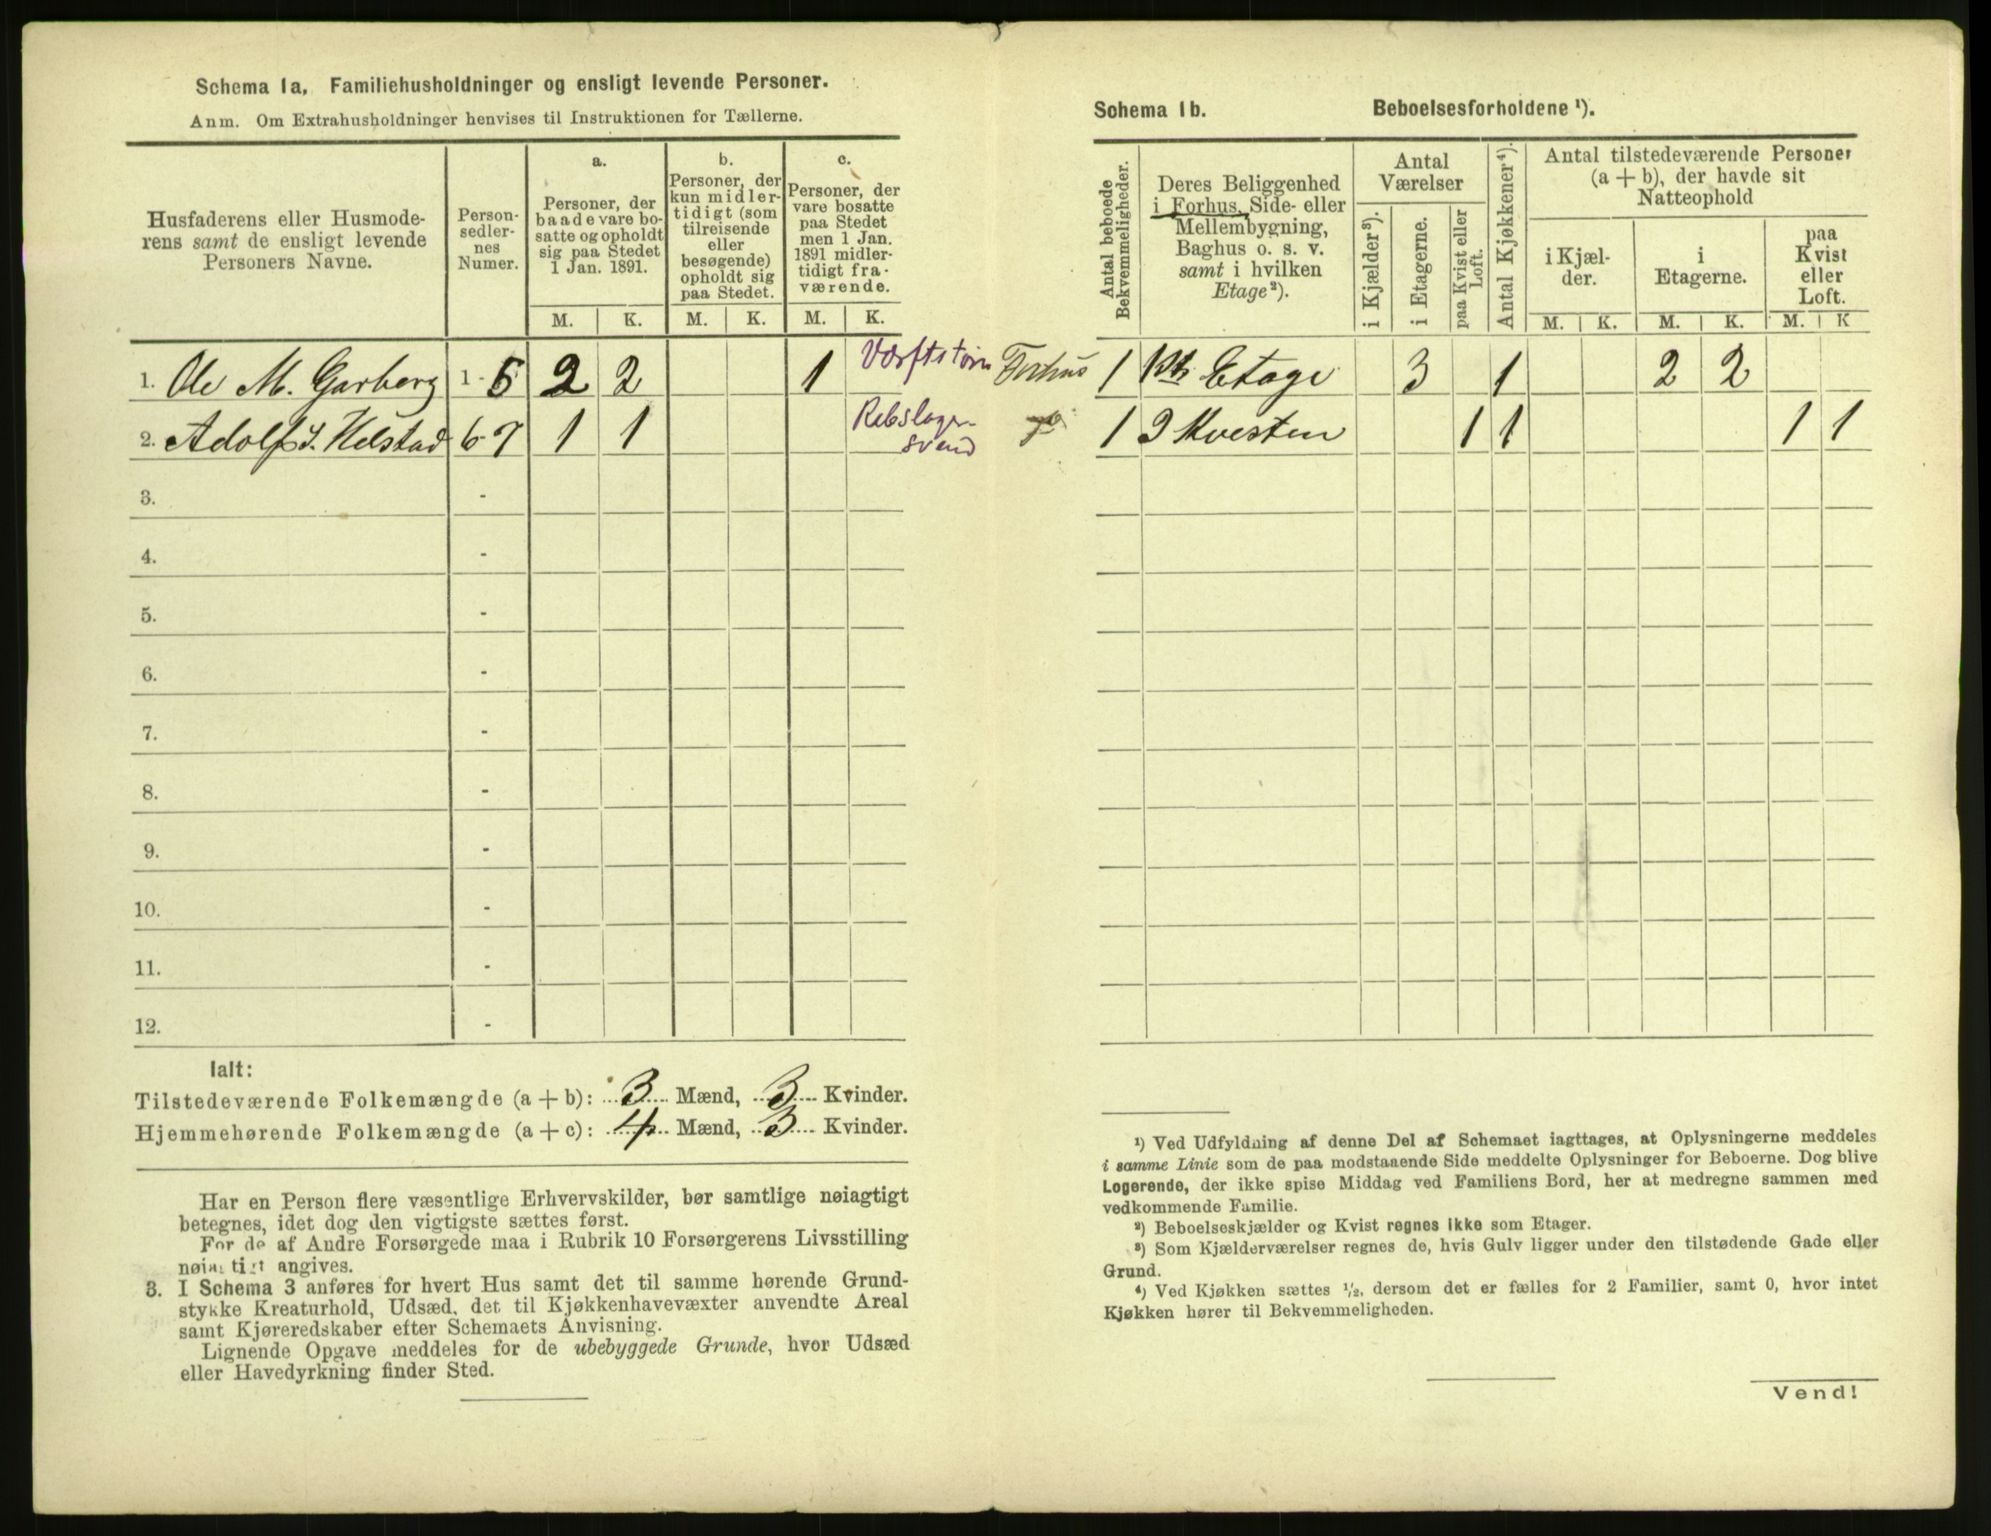 Schema 1a, Familiehusholdninger og ensligt levende Personer.
Anm. Om Extrahusholdninger henvises til Instruktionen for Tællerne.
Husfaderens eller Husmode-
rens samt de ensligt levende
Personers Navne.
Person-
sedler-
nes
Numer.
a.
Personer, der
baade vare bo-
satte og opholdt
sig paa Stedet
1 Jan. 1891.
b.
Personer, der
kun midler-
tidigt (som
tilreisende
eller
besøgende)
opholdt sig
paa Stedet.
c.
Personer, der
vare bosatte
paa Stedet
men 1 Jan.
1891 midler-
tidigt fra-
værende.
M. K. M. K. M. K.
1. Ole M. Garberg 1 - 5 2 2 1
2. Adolf J. Helstad 6 - 7 1 1 Rebslager-
svend
3. -
4. -
5. -
6. -
7. -
8. -
9. -
10. -
11. -
12. -
Ialt:
Tilstedeværende Folkemængde (a + b): 3 Mænd, 3 Kvinder.
Hjemmehørende Folkemængde (a + c): 4 Mænd, 3 Kvinder.
Har en Person flere væsentlige Erhvervskilder, bør samtlige nøiagtigt
betegnes, idet dog den vigtigste sættes først.
For de af Andre Forsørgede maa i Rubrik 10 Forsørgerens Livsstilling
nøiagtigt angives.
3. I Schema 3 anføres for hvert Hus samt det til samme hørende Grund-
stykke Kreaturhold, Udsæd, det til Kjøkkenhavevæxter anvendte Areal
samt Kjøreredskaber efter Schemaets Anvisning.
Lignende Opgave meddeles for de ubebyggede Grunde, hvor Udsæd
eller Havedyrkning finder Sted.
Schema 1b. Beboelsesforholdene ¹).
Antal beboede
Bekvemmeligheder.
Deres Beliggenhed
i Forhus, Side- eller
Mellembygning,
Baghus o. s. v.
samt i hvilken
Etage²).
Antal
Værelser
i Kjælder³).
i Etagerne.
paa Kvist eller
Loft.
Antal Kjøkkener⁴).
Antal tilstedeværende Personer
(a + b), der havde sit
Natteophold
i Kjæl-
der.
i
Etagerne.
paa
Kvist
eller
Loft.
M. K. M. K. M. K
Forhus 1 1ste Etage 3 1 2 2
do 1 Kvisten 1 1 1 1
¹) Ved Udfyldning af denne Del af Schemaet iagttages, at Oplysningerne meddeles
i samme Linie som de paa modstaaende Side meddelte Oplysninger for Beboerne. Dog blive
Logerende, der ikke spise Middag ved Familiens Bord, her at medregne sammen med
vedkommende Familie.
²) Beboelseskjælder og Kvist regnes ikke som Etager.
³) Som Kjælderværelser regnes de, hvis Gulv ligger under den tilstødende Gade eller
Grund.
⁴) Ved Kjøkken sættes ¹/₂, dersom det er fælles for 2 Familier, samt 0, hvor intet
Kjøkken hører til Bekvemmeligheden.
Vend!